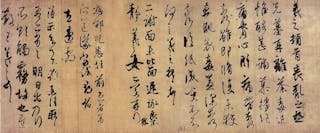 羲之頓首喪亂之極
先墓再離荼毒追
惟酷甚號慕摧絕
痛貫心肝痛當奈何
奈何雖即脩復未獲
奔馳哀毒益深奈何
奈何臨紙感哽不知
何言羲之頓首頓首
二謝面未比面遲詠良不
靜羲之女愛再拜
想邰兒悉佳前患者善
所送議當試尋省
左邊劇
得示知足下猶未佳耿耿
吾亦劣劣明日出乃行
不欲觸霧故也遲散
王羲之頓首